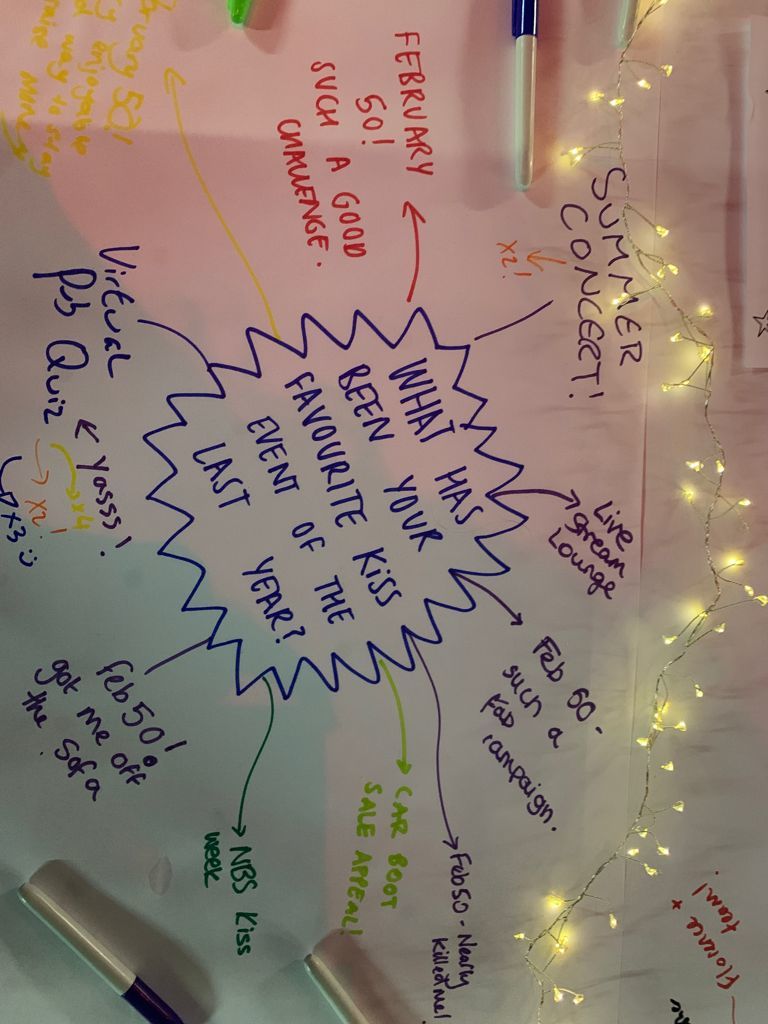 WHAT HAS
BEEN YOUR
FAVOURITE KISS
EVENT OF THE
LAST YEAR?
SUMMER
CONCERT!
x2!
Live
Stream
Lounge
Feb 60-
such a
Fab
campaign.
Feb50 - Nearly
killed me!
CAR BOOT
SALE APPEAL!
NBS Kiss
week
feb 50!
got me off
the sofa
Virtual
Pub Quiz
Yasss!
x4
x2!
x3
February 50!
enjoyable
way to stay
FEBRUARY
50!
SUCH A GOOD
CHALLENGE.
Florence +
team!